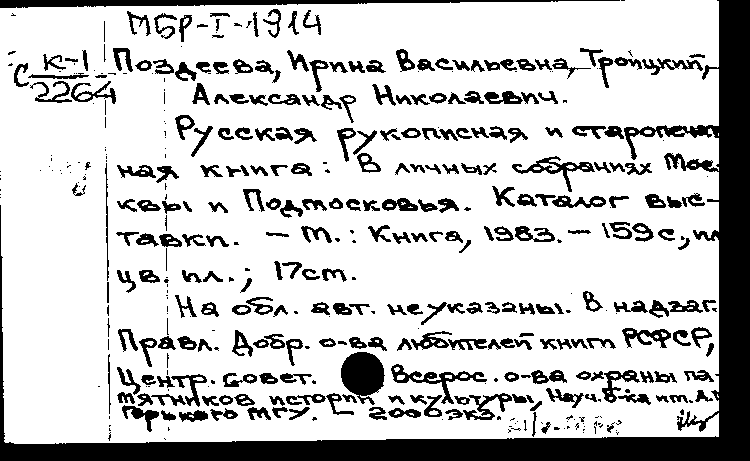 МБР-I-1914
С К-1 Поздеева, Ирина Васильевна, Троицкий,
2264 Александр Николаевич.
Русская рукописная и старопечат
ная книга: В личных собраниях Мос-
квы и Подмосковья. Каталог выс-
тавки. — М.: Книга, 1983. — 159 с., ил
цв. ил.; 17 см.
На обл. авт. не указаны. В надзаг.
Правл. Добр. о-ва любителей книги РСФСР,
Центр. совет. Всерос. о-ва охраны па-
мятников истории и культуры, Науч. б-ка им. А.М
Горького МГУ. — 2000 экз.